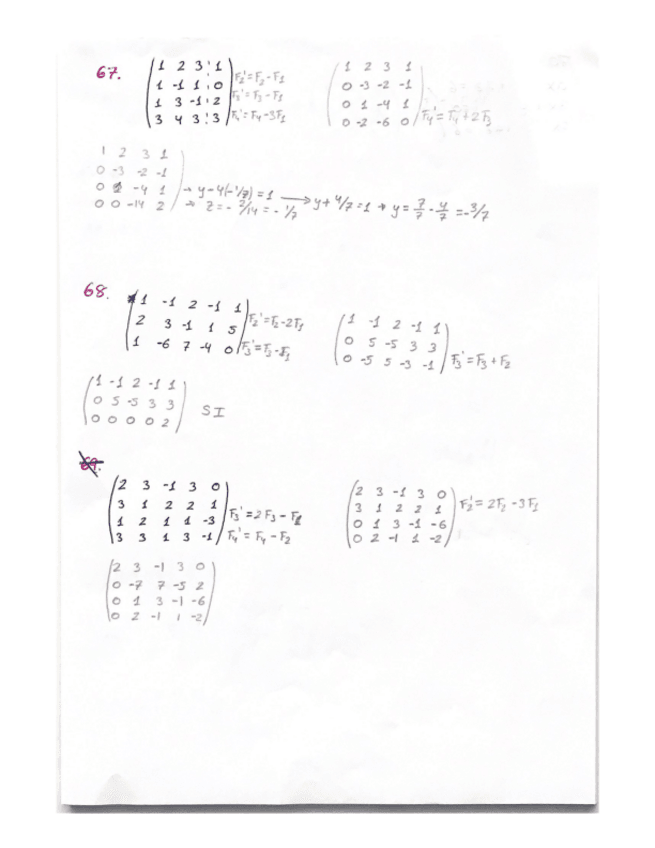 67. (1 2 3 ¦ 1
1 -1 1 ¦ 0
1 3 -1 ¦ 2
3 4 3 ¦ 3) F₂' = F₂ - F₁
F₃' = F₃ - F₁
F₄' = F₄ - 3F₁
(1 2 3 1
0 -3 -2 -1
0 1 -4 1
0 -2 -6 0) F₄' = F₄ + 2F₃
1 2 3 1
0 -3 -2 -1
0 1 -4 1 → y - 4(-1/7) = 1 → y + 4/7 = 1 → y = 7/7 - 4/7 = -3/7
0 0 -14 2) → z = -2/14 = -1/7
68. (1 -1 2 -1 1
2 3 -1 1 5
1 -6 7 -4 0) F₂' = F₂ - 2F₁
F₃' = F₃ - F₁
(1 -1 2 -1 1
0 5 -5 3 3
0 -5 5 -3 -1) F₃' = F₃ + F₂
(1 -1 2 -1 1
0 5 -5 3 3
0 0 0 0 2) SI
69.
(2 3 -1 3 0
3 1 2 2 1
1 2 1 1 -3
3 3 1 3 -1) F₃' = 2F₃ - F₁
F₄' = F₄ - F₂
(2 3 -1 3 0
3 1 2 2 1
0 1 3 -1 -6
0 2 -1 1 -2) F₂' = 2F₂ - 3F₁
(2 3 -1 3 0
0 -7 7 -5 2
0 1 3 -1 -6
0 2 -1 1 -2)